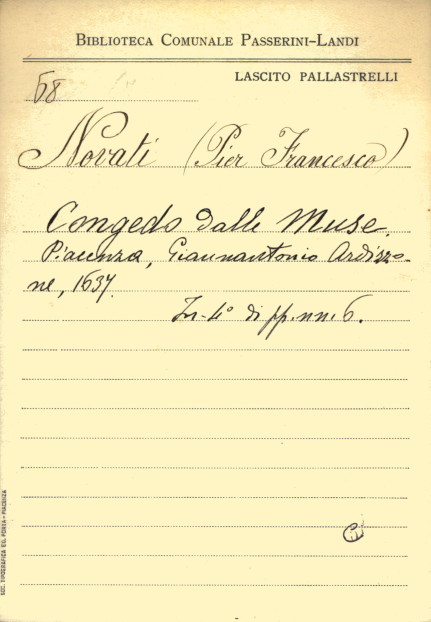 BIBLIOTECA COMUNALE PASSERINI-LANDI
LASCITO PALLASTRELLI
68
Novati (Pier Francesco)
Congedo dalle Muse.
Piacenza, Giannantonio Ardizzo-
ne, 1637.
In-4° di pp. nn. 6.
SOC. TIPOGRAFICA ED. PORTA - PIACENZA